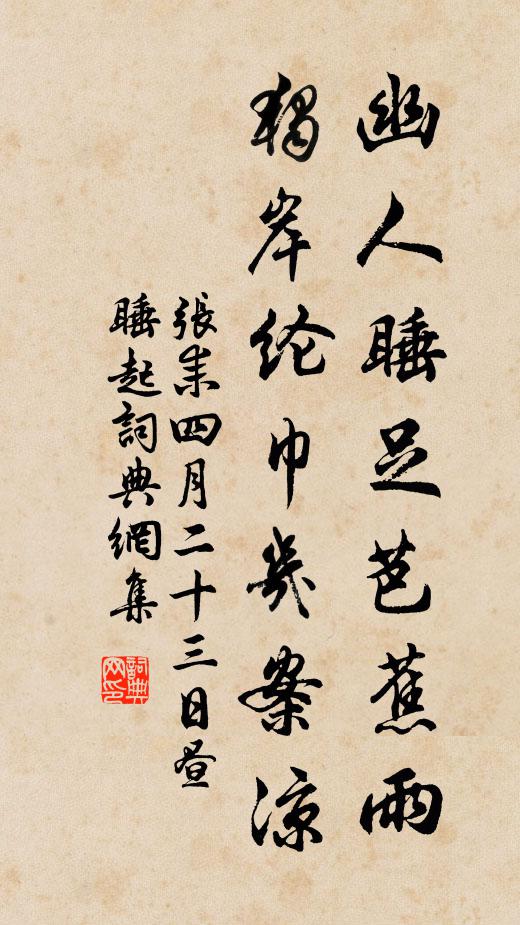 幽人睡足芭蕉雨
獨岸纶巾几案凉
張耒四月二十三日昼
睡起詞典網集
詞典网印